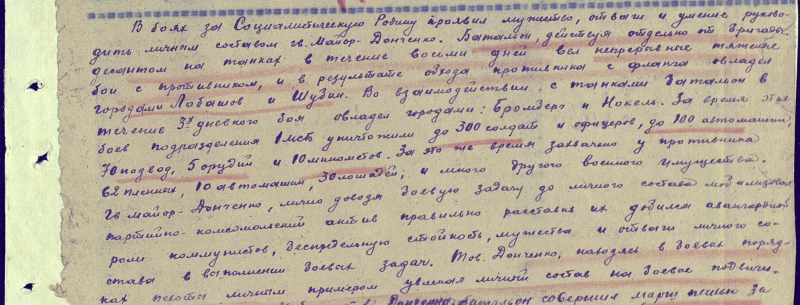 В боях за Социалистическую Родину проявил мужество, отваги и умение руково-
дить личным составом гв. Майор-Донченко. Батальон, действуя отдельно от бригады
десантом на танках в течение восьми дней вел непрерывные тяжелые
бои с противником, и в результате обхода противника с фланга овладел
городами Лабашов и Шубин. Во взаимодействии с танками батальон в
течение 3х дневного боя овладел городами: Бромберг и Нокель. За время этих
боев подразделения 1мсб уничтожили до 300 солдат и офицеров, до 100 автомашин,
70 подвод, 5 орудий и 10 минометов. За это же время захвачено у противника
62 пленных, 10 автомашин, 30 лошадей, и много другого военного имущества.
Гв. майор-Донченко, лично доводя боевую задачу до личного состава мобилизовал
партийно-комсомольский актив правильно расставив их добился авангардной
роли коммунистов, беспредельную стойкость, мужества и отваги личного со-
става в выполнении боевых задач. Тов. Донченко, находясь в боевых поряд-
ках пехоты личным примером увлекал личный состав на боевые подвиги.
Донченко батальон совершил марш пешим за